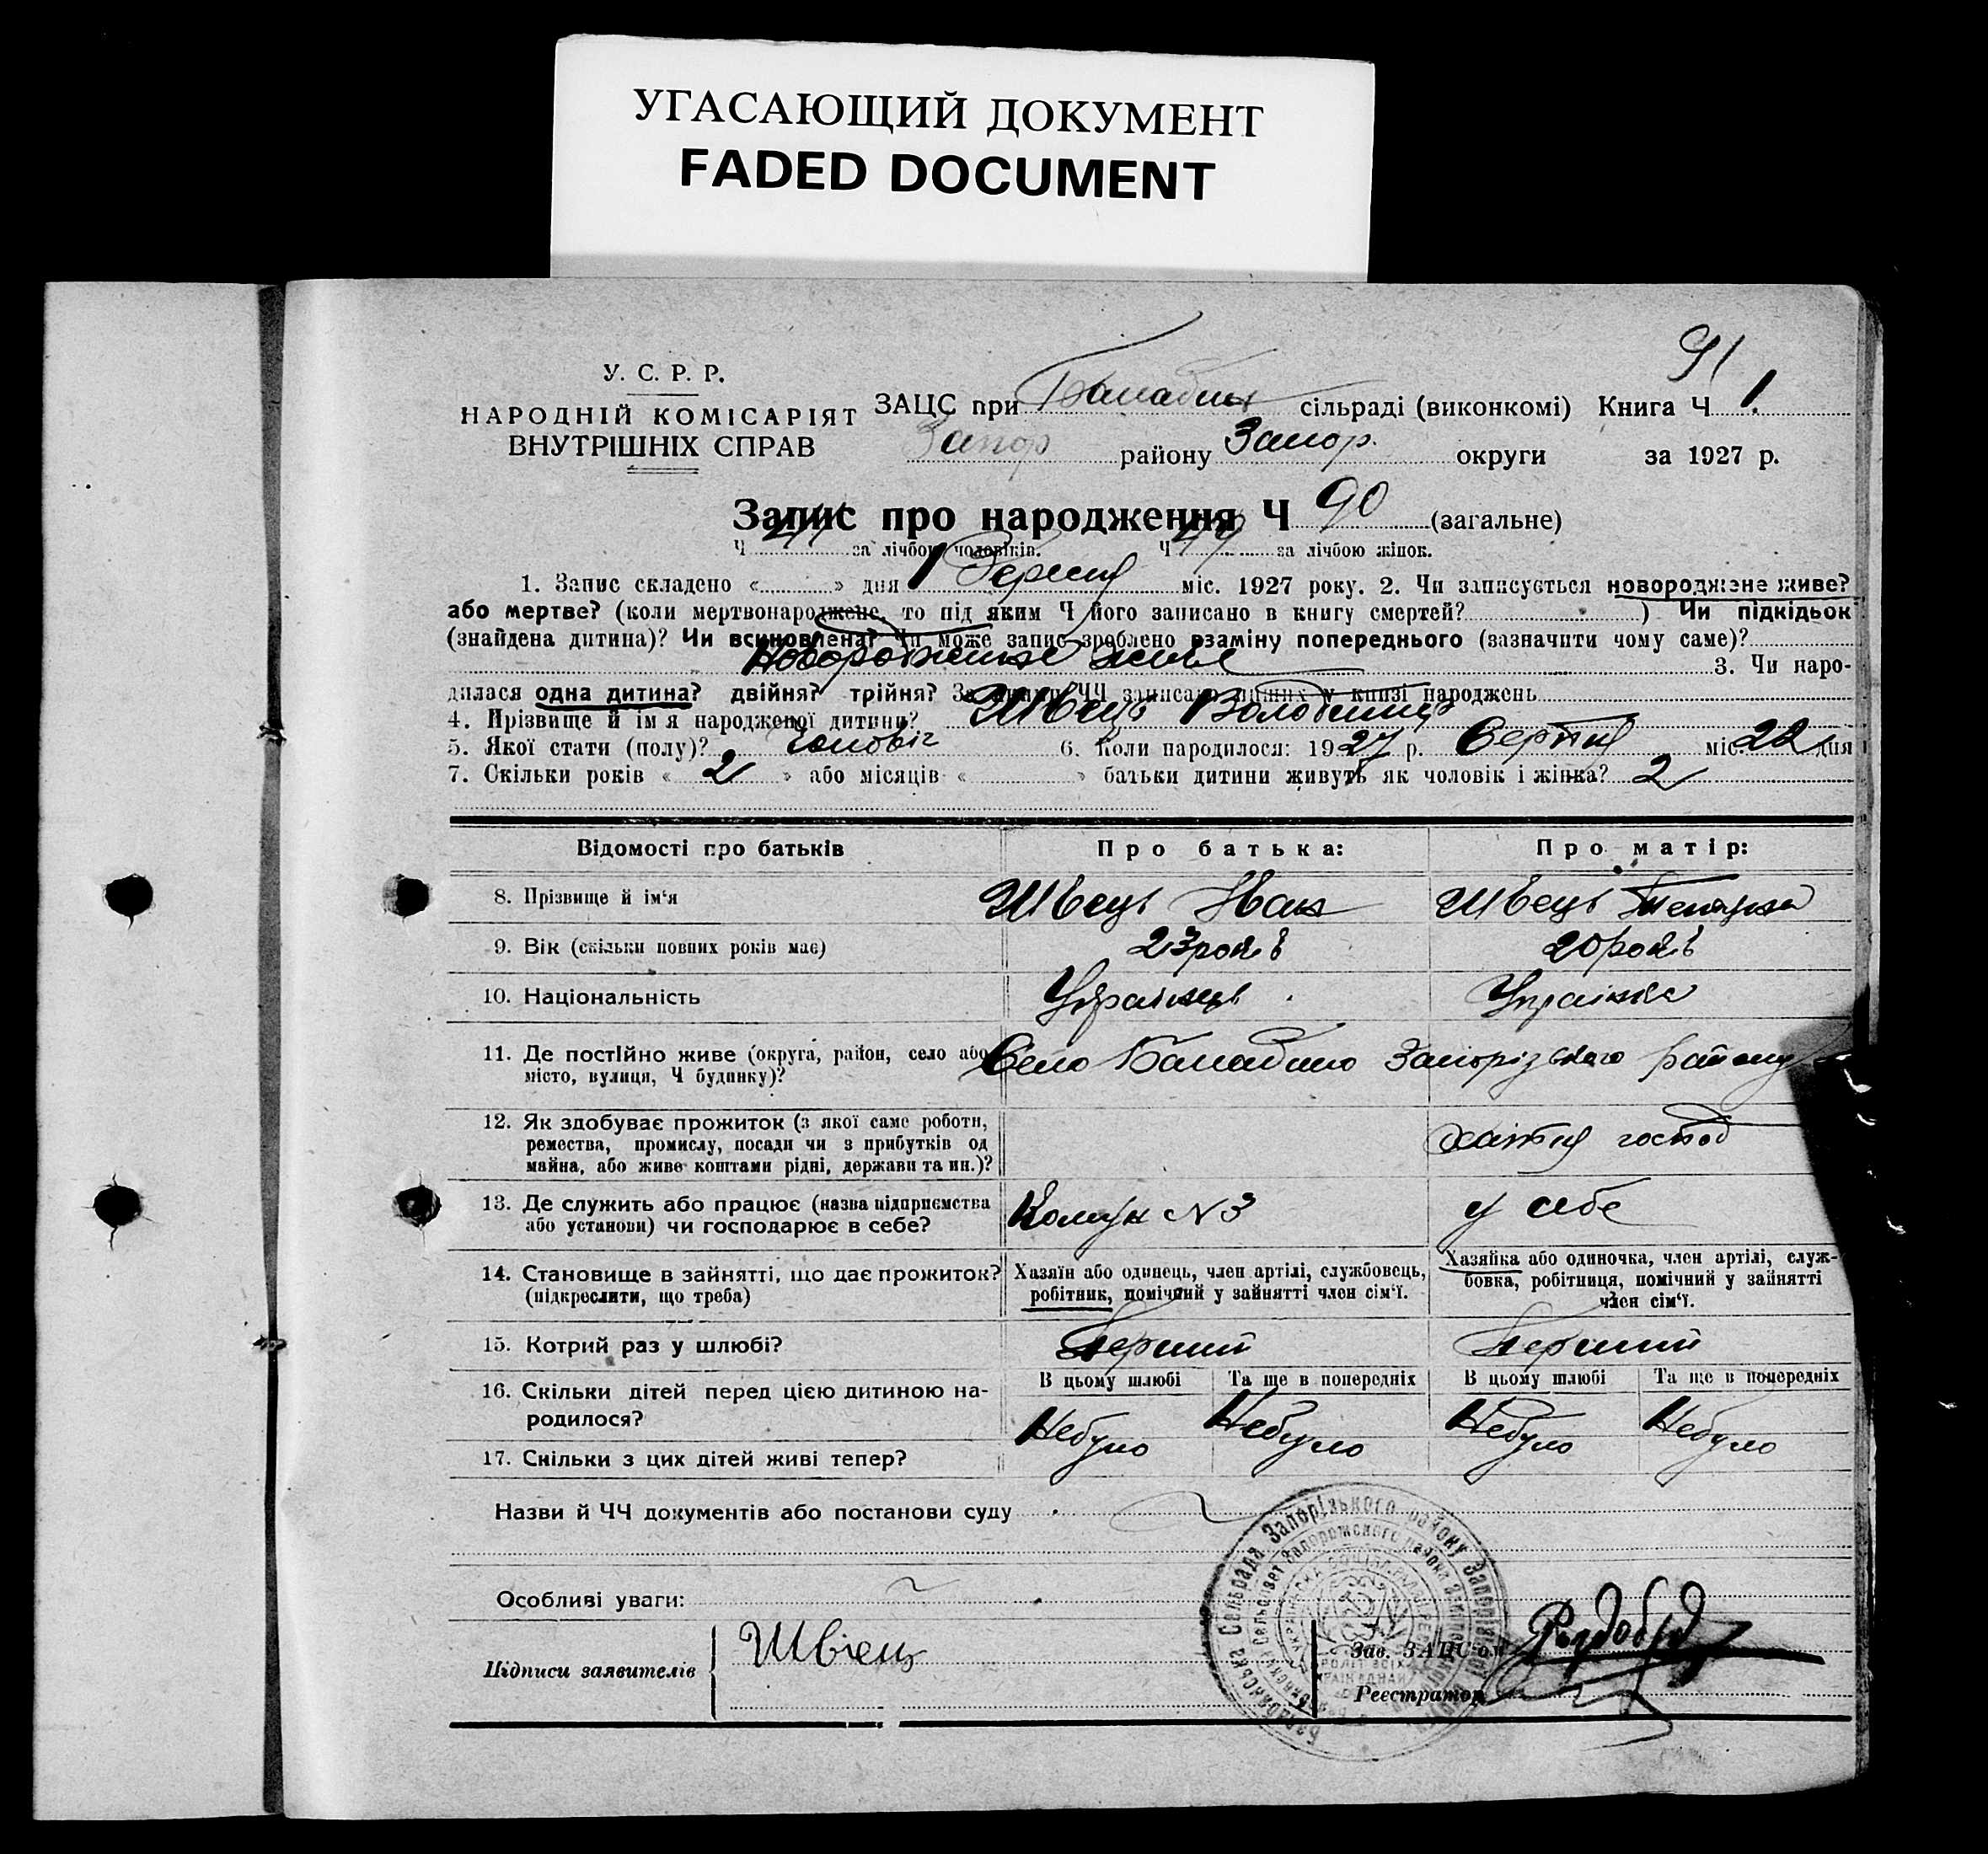 УГАСАЮЩИЙ ДОКУМЕНТ
FADED DOCUMENT
91
У. С. Р. Р.
НАРОДНІЙ КОМІСАРІЯТ
ВНУТРІШНІХ СПРАВ
ЗАЦС при Балабин сільраді (виконкомі) Книга Ч 1.
Запор району Запор. округи за 1927 р.
Запис про народження Ч 90 (загальне)
Ч за лічбою чоловіків. Ч за лічбою жінок.
1. Запис складено « » дня 1 Вересня міс. 1927 року. 2. Чи записується новороджене живе?
або мертве? (коли мертвонароджене, то під яким Ч його записано в книгу смертей? ) Чи підкідьок
(знайдена дитина)? Чи всиновлена? Чи може запис зроблено взаміну попереднього (зазначити чому саме)?
Новорожденне живе 3. Чи наро-
дилася одна дитина? двійня? трійня? За якими ЧЧ записано инших у книзі народжень
4. Прізвище й ім'я народженої дитини? Швець Володимир
5. Якої стати (полу)? Чоловіч 6. Коли народилося: 1927 р. Серпня міс. 22 дня
7. Скільки років « 2 » або місяців « » батьки дитини живуть як чоловік і жінка? 2
Відомості про батьків Про батька: Про матір:
8. Прізвище й ім'я Швець Иван Швець
9. Вік (скільки повних років має) 23 років 20 років
10. Національність Українець Українка
11. Де постійно живе (округа, район, село або місто, вулиця, Ч будинку)? Село Балабино Запорізького району
12. Як здобуває прожиток (з якої саме роботи,
ремества, промислу, посади чи з прибутків од
майна, або живе коштами рідні, держави та ин.)? хатня господ
13. Де служить або працює (назва підприємства
або установи) чи господарює в себе? Комун N 3 у себе
14. Становище в зайнятті, що дає прожиток?
(підкреслити, що треба)
Хазяїн або одинець, член артілі, службовець,
робітник, помічний у зайнятті член сім'ї.
Хазяйка або одиночка, член артілі, служ-
бовка, робітниця, помічний у зайнятті
член сім'ї.
15. Котрий раз у шлюбі? Перший Перший
16. Скільки дітей перед цією дитиною на-
родилося?
В цьому шлюбі Та ще в попередніх В цьому шлюбі Та ще в попередніх
Небуло Небуло Небуло Небуло
17. Скільки з цих дітей живі тепер?
Назви й ЧЧ документів або постанови суду
Особливі уваги:
Підписи заявителів Швець
Зав. ЗАЦС'ом
Реєстратор
Балабинська Сельрада Запорізького району